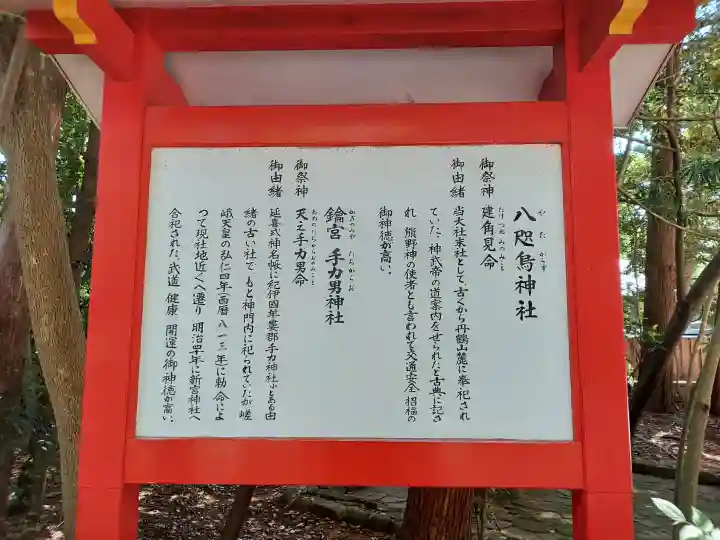 八咫烏神社
やたがらす
御祭神 建角見命
たけつぬみのみこと
御由緒 当大社末社として、古くから丹鶴山麓に奉祀され
ていた、神武帝の道案内をせられたと古典に記さ
れ 熊野神の使者とも言われて交通安全 招福の
御神徳が高い、
鑰宮 手力男神社
かぎのみや たぢからお
御祭神 天之手力男命
あめのたぢからおのみこと
御由緒 延喜式神名帳に紀伊國牟婁郡手力神社とある由
緒の古い社で もと神門内に祀られていたが嵯
峨天皇の弘仁四年(西暦 八一三年)に勅命によ
って現社地近くへ遷り 明治四十年に新宮神社へ
合祀された、武道 健康 開運の御神徳が高い、